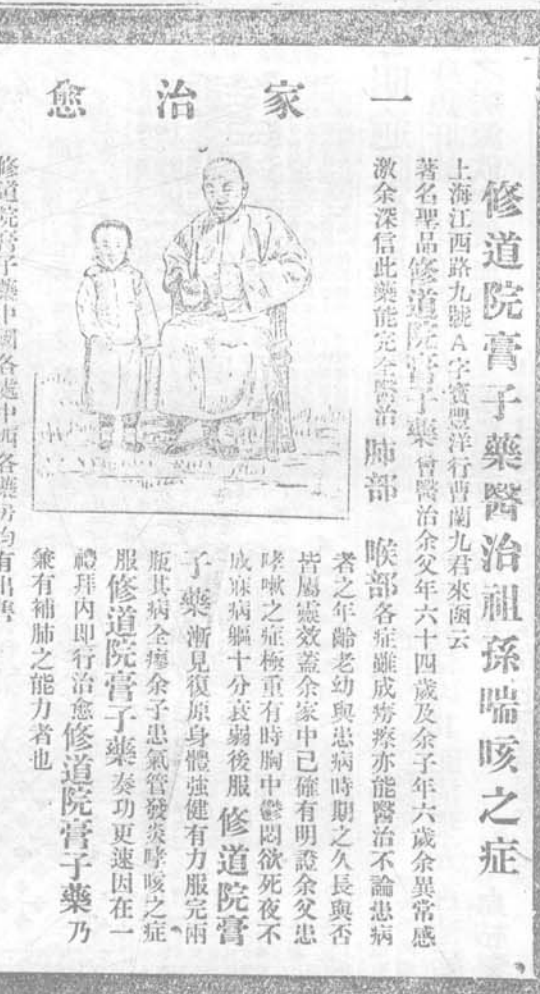 一家治愈
修道院膏子藥醫治祖孫喘咳之症
上海江西路九號A字寶豐洋行曹蘭九君來函云
著名聖品修道院膏子藥曾醫治余父年六十四歲及余子年六歲余異常感
激余深信此藥能完全醫治肺部 喉部各症雖成癆瘵亦能醫治不論患病
者之年齡老幼與患病時期之久長與否
皆屬靈效蓋余家中已確有明證余父患
哮嗽之症極重有時胸中鬱悶欲死夜不
成寐病軀十分衰弱後服修道院膏
子藥漸見復原身體強健有力服完兩
瓶其病全瘳余子患氣管發炎哮咳之症
服修道院膏子藥奏功更速因在一
禮拜內即行治愈修道院膏子藥乃
兼有補肺之能力者也
修道院膏子藥中國各處中西各藥房均有出售